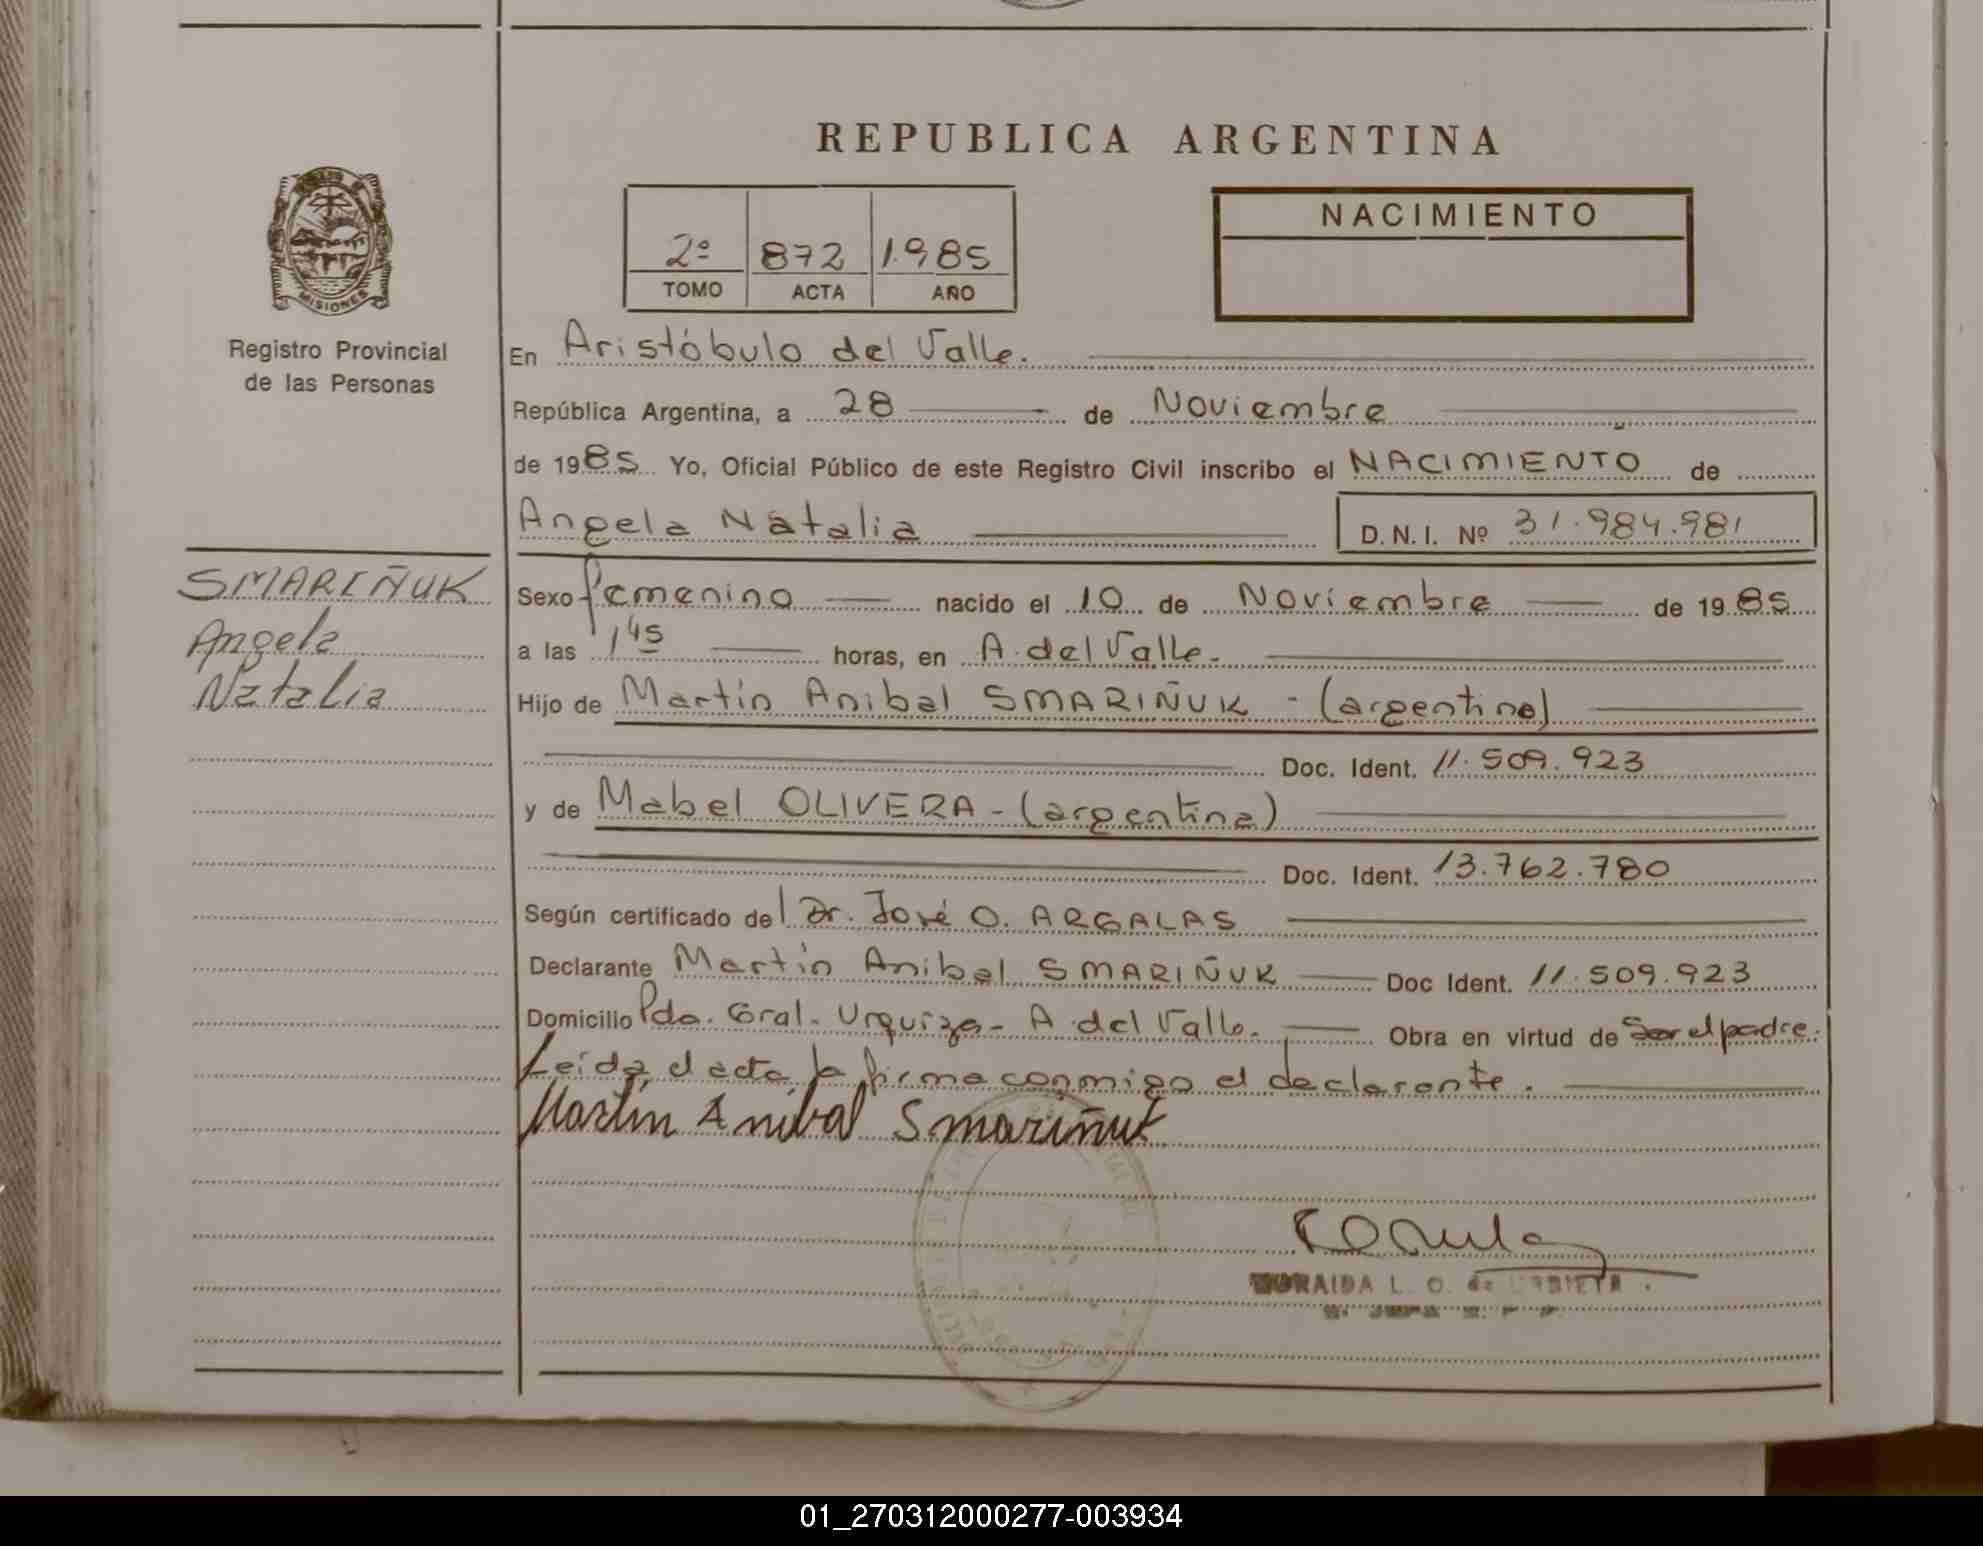 REPUBLICA ARGENTINA
MISIONES
Registro Provincial
de las Personas
2º 872 1.985
TOMO ACTA AÑO
NACIMIENTO
En Aristóbulo del Valle.
República Argentina, a 28 de Noviembre
de 1985 Yo, Oficial Público de este Registro Civil inscribo el NACIMIENTO de
Angela Natalia D.N.I. Nº 31.984.981
SMARIÑUK
Angela
Natalia
Sexo femenino nacido el 10 de Noviembre de 1985
a las 1 45 horas, en A. del Valle.
Hijo de Martín Anibal SMARIÑUK - (argentino)
Doc. Ident. 11.509.923
y de Mabel OLIVERA - (argentina)
Doc. Ident. 13.762.780
Según certificado del Dr. José O. ARGALAS
Declarante Martín Anibal SMARIÑUK Doc Ident. 11.509.923
Domicilio Pdo. Gral. Urquiza - A. del Valle. Obra en virtud de Ser el padre.
Leída el acta la firma conmigo el declarante.
Martín Anibal Smariñuk
ZORAIDA L. O. de URBIETA
01_270312000277-003934